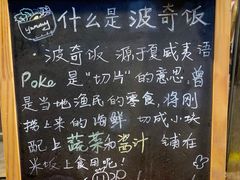 yummy 什么是波奇饭
·波奇饭 源于夏威夷语
Poke 是"切片"的意思,曾
是当地渔民的零食,将刚
捞上来的海鲜 切成小块
配上蔬菜和酱汁 铺在
米饭上食用呢!